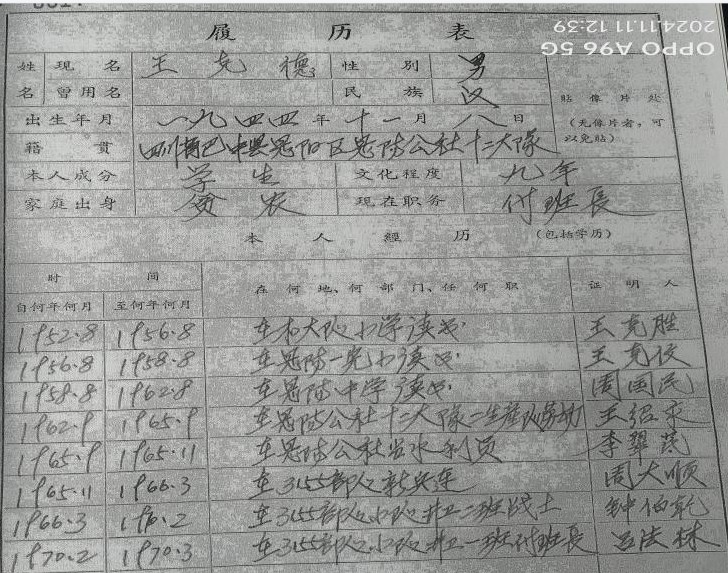 履历表
姓名 现名 王克德 性别 男
曾用名 民族 汉
贴像片处
(无像片者，可以免贴)
出生年月 一九四四年十一月八日
籍贯 四川省巴中县恩阳区恩阳公社十二大队
本人成分 学生 文化程度 九年
家庭出身 贫农 现在职务 付班長
本人經历 (包括学历)
时间 在何地、何部门、任何职 证明人
自何年何月 至何年何月
1952.8 1956.8 在本大队小学读书. 王克胜
1956.8 1958.8 在恩阳一完小读书. 王克
1958.8 1962.8 在恩阳中学读书. 周国民
1962.9 1965.9 在恩阳公社十二大隊二生産队劳动 王绍
1965.9 1965.11 在恩阳公社当水利员 李
1965.11 1966.3 在3155部队新兵连 周大顺
1966.3 2 在3155部队小队井卫二班战士 钟伯乾
1970.2 1970.3 在3155部队小队井卫一班付班長 法林
2024.11.11 12:39
OPPO A96 5G